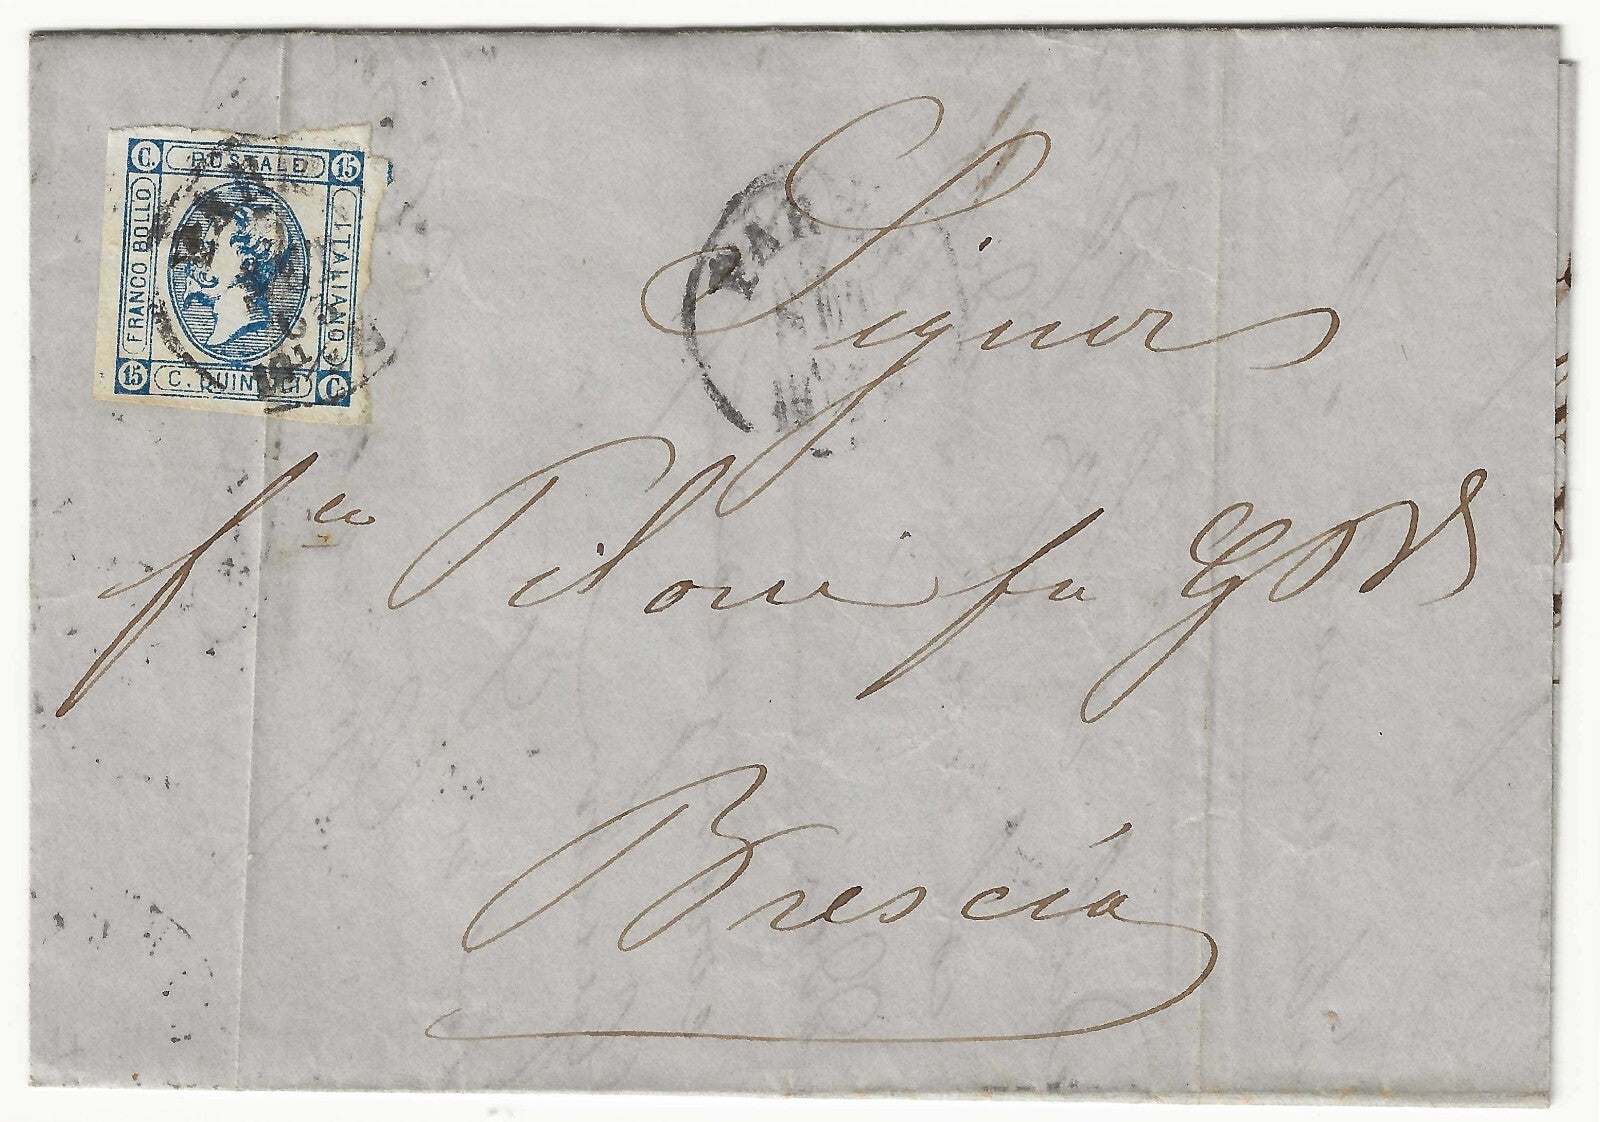 C. POSTALE 15
FRANCO BOLLO
ITALIANO
15 C. QUINDICI C.
PAR
63
Signor
fco Piloni fu GBa
Brescia